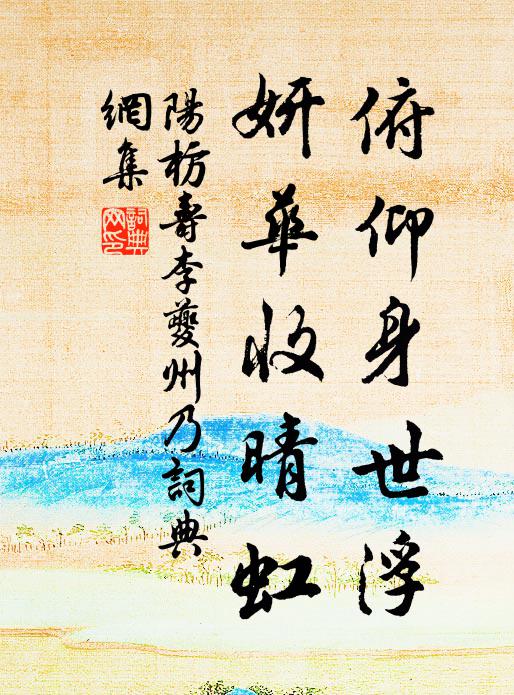 俯仰身世浮
妍華收晴虹
陽枋壽李夔州乃詞典
網集
詞典
网印